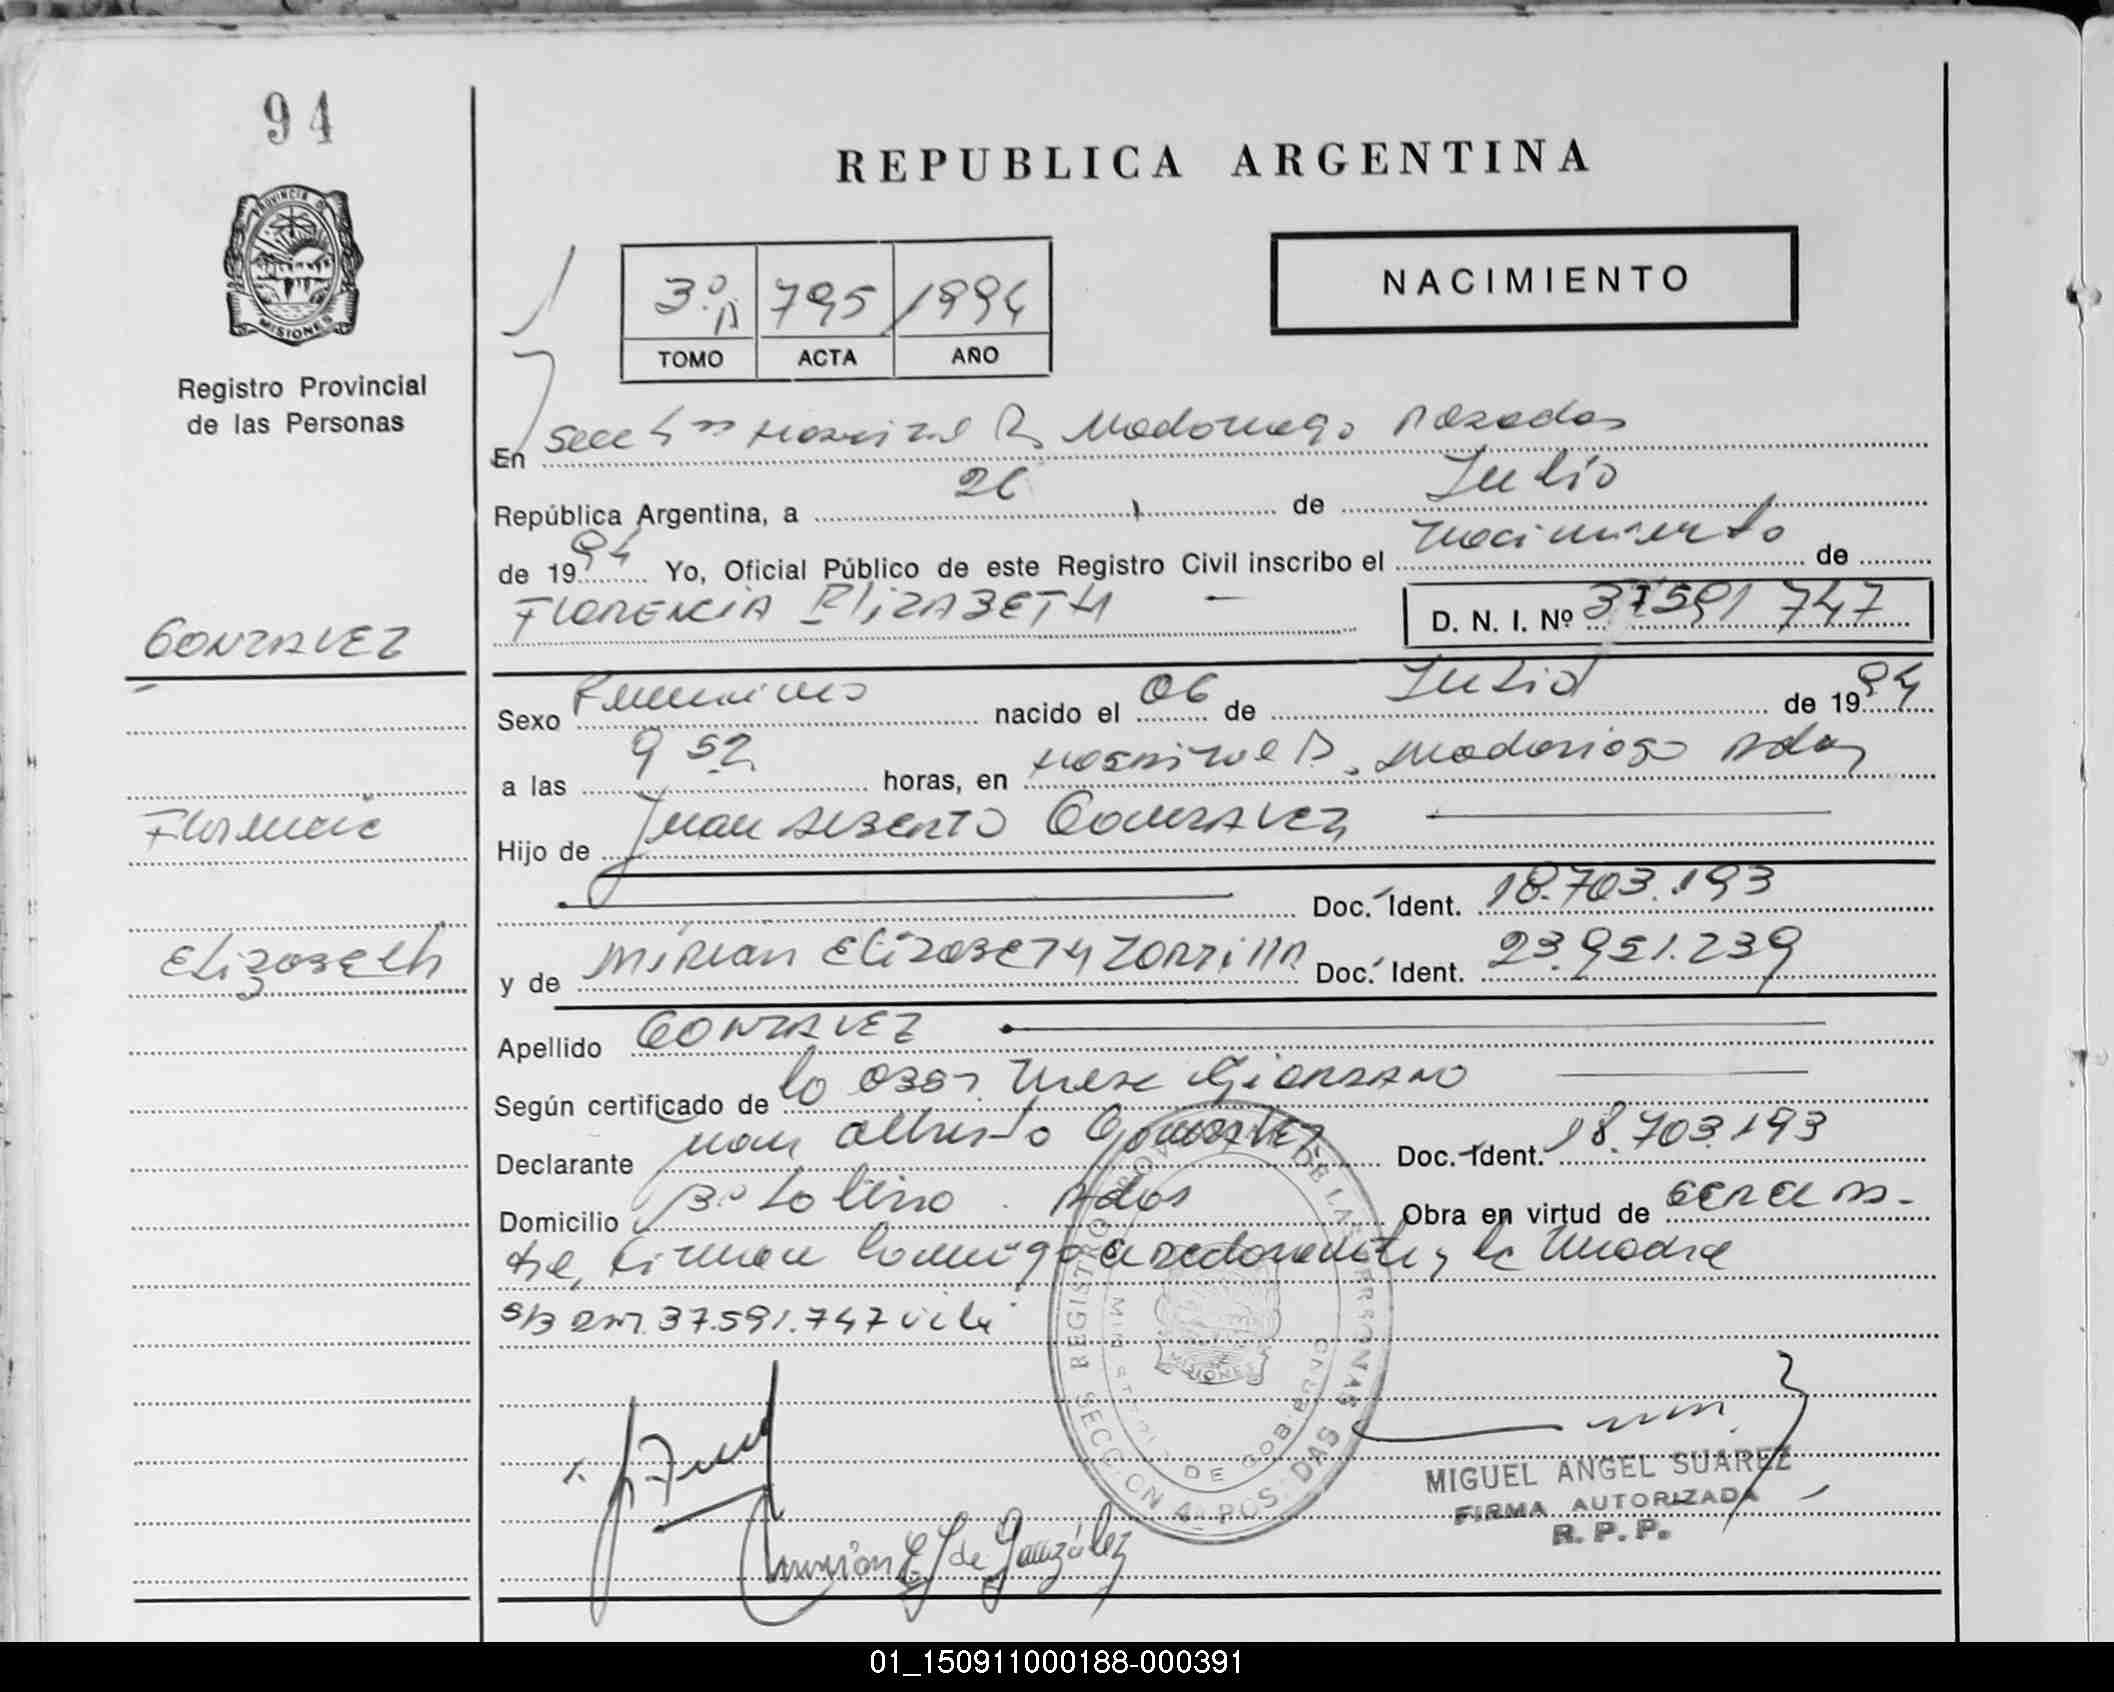 94
REPUBLICA ARGENTINA
PROVINCIA D
MISIONES
Registro Provincial
de las Personas
NACIMIENTO
3º A 795 1994
TOMO ACTA AÑO
En Secc 4ta Hospital R. Madariaga Posadas
República Argentina, a 26 de Julio
de 1994 Yo, Oficial Público de este Registro Civil inscribo el nacimiento de
FLORENCIA ELIZABETH D. N. I. Nº 37591747
GONZALEZ
Florencia
Elizabeth
Sexo Femenino nacido el 06 de Julio de 1994
a las 9 52 horas, en Hospital R. Madariaga Pdas
Hijo de Juan Alberto Gonzalez
Doc. Ident. 18.703.193
y de Mirian Elizabeth Zorrilla Doc. Ident. 23.951.239
Apellido GONZALEZ
Según certificado de la Obst.
Declarante Juan Alberto Gonzalez Doc. Ident. 18.703.193
Domicilio Bº Pdas Obra en virtud de
firman conmigo el declarante y la madre
37.591.747 vile
REGISTRO PROVINCIAL DE LAS PERSONAS
MINISTERIO DE GOBIERNO
MISIONES
SECCION 4a POSADAS
Mirian E Z de González
MIGUEL ANGEL SUAREZ
FIRMA AUTORIZADA
R. P. P.
01_150911000188-000391